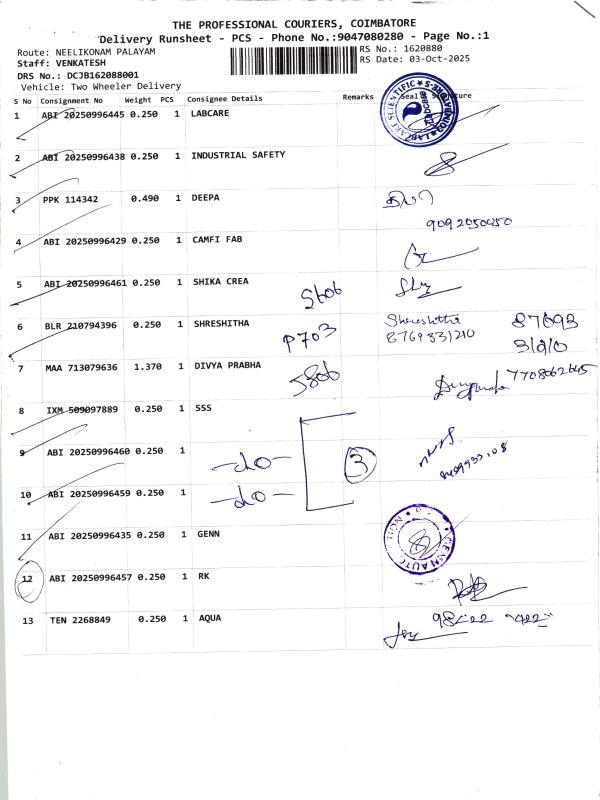 THE PROFESSIONAL COURIERS, COIMBATORE
Delivery Runsheet - PCS - Phone No.:9047080280 - Page No.:1
Route: NEELIKONAM PALAYAM
RS No.: 1620880
Staff: VENKATESH
RS Date: 03-Oct-2025
DRS No.: DCJB162088001
Vehicle: Two Wheeler Delivery
S No Consignment No Weight PCS Consignee Details Remarks Seal Signature
1 ABI 20250996445 0.250 1 LABCARE
2 ABI 20250996438 0.250 1 INDUSTRIAL SAFETY
3 PPK 114342 0.490 1 DEEPA
9092050450
4 ABI 20250996429 0.250 1 CAMFI FAB
5 ABI 20250996461 0.250 1 SHIKA CREA
S606
6 BLR 210794396 0.250 1 SHRESHITHA P703 Shreshitha
7 MAA 713079636 1.370 1 DIVYA PRABHA S806
8 IXM 509097889 0.250 1 SSS
9 ABI 20250996460 0.250 1 -do- 3
10 ABI 20250996459 0.250 1 -do-
11 ABI 20250996435 0.250 1 GENN
12 ABI 20250996457 0.250 1 RK
13 TEN 2268849 0.250 1 AQUA